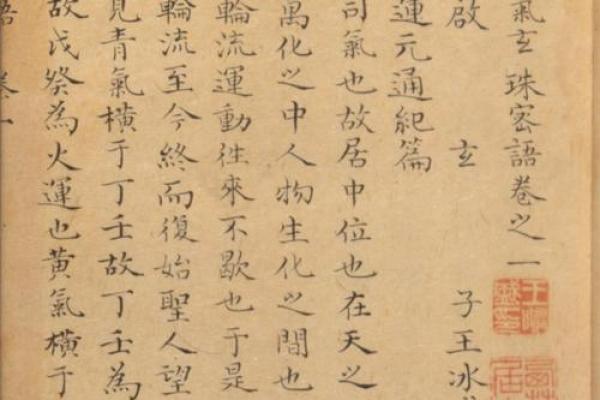 氣玄珠密語卷之一
啟玄子王冰
運元通紀篇
司氣也故居中位也在天之
萬化之中人物生化之間也
輪流運動徃來不歇也于是
輪流至今終而復始聖人望
見青氣橫于丁壬故丁壬為
故戊癸為火運也黃氣橫于
語 卷一